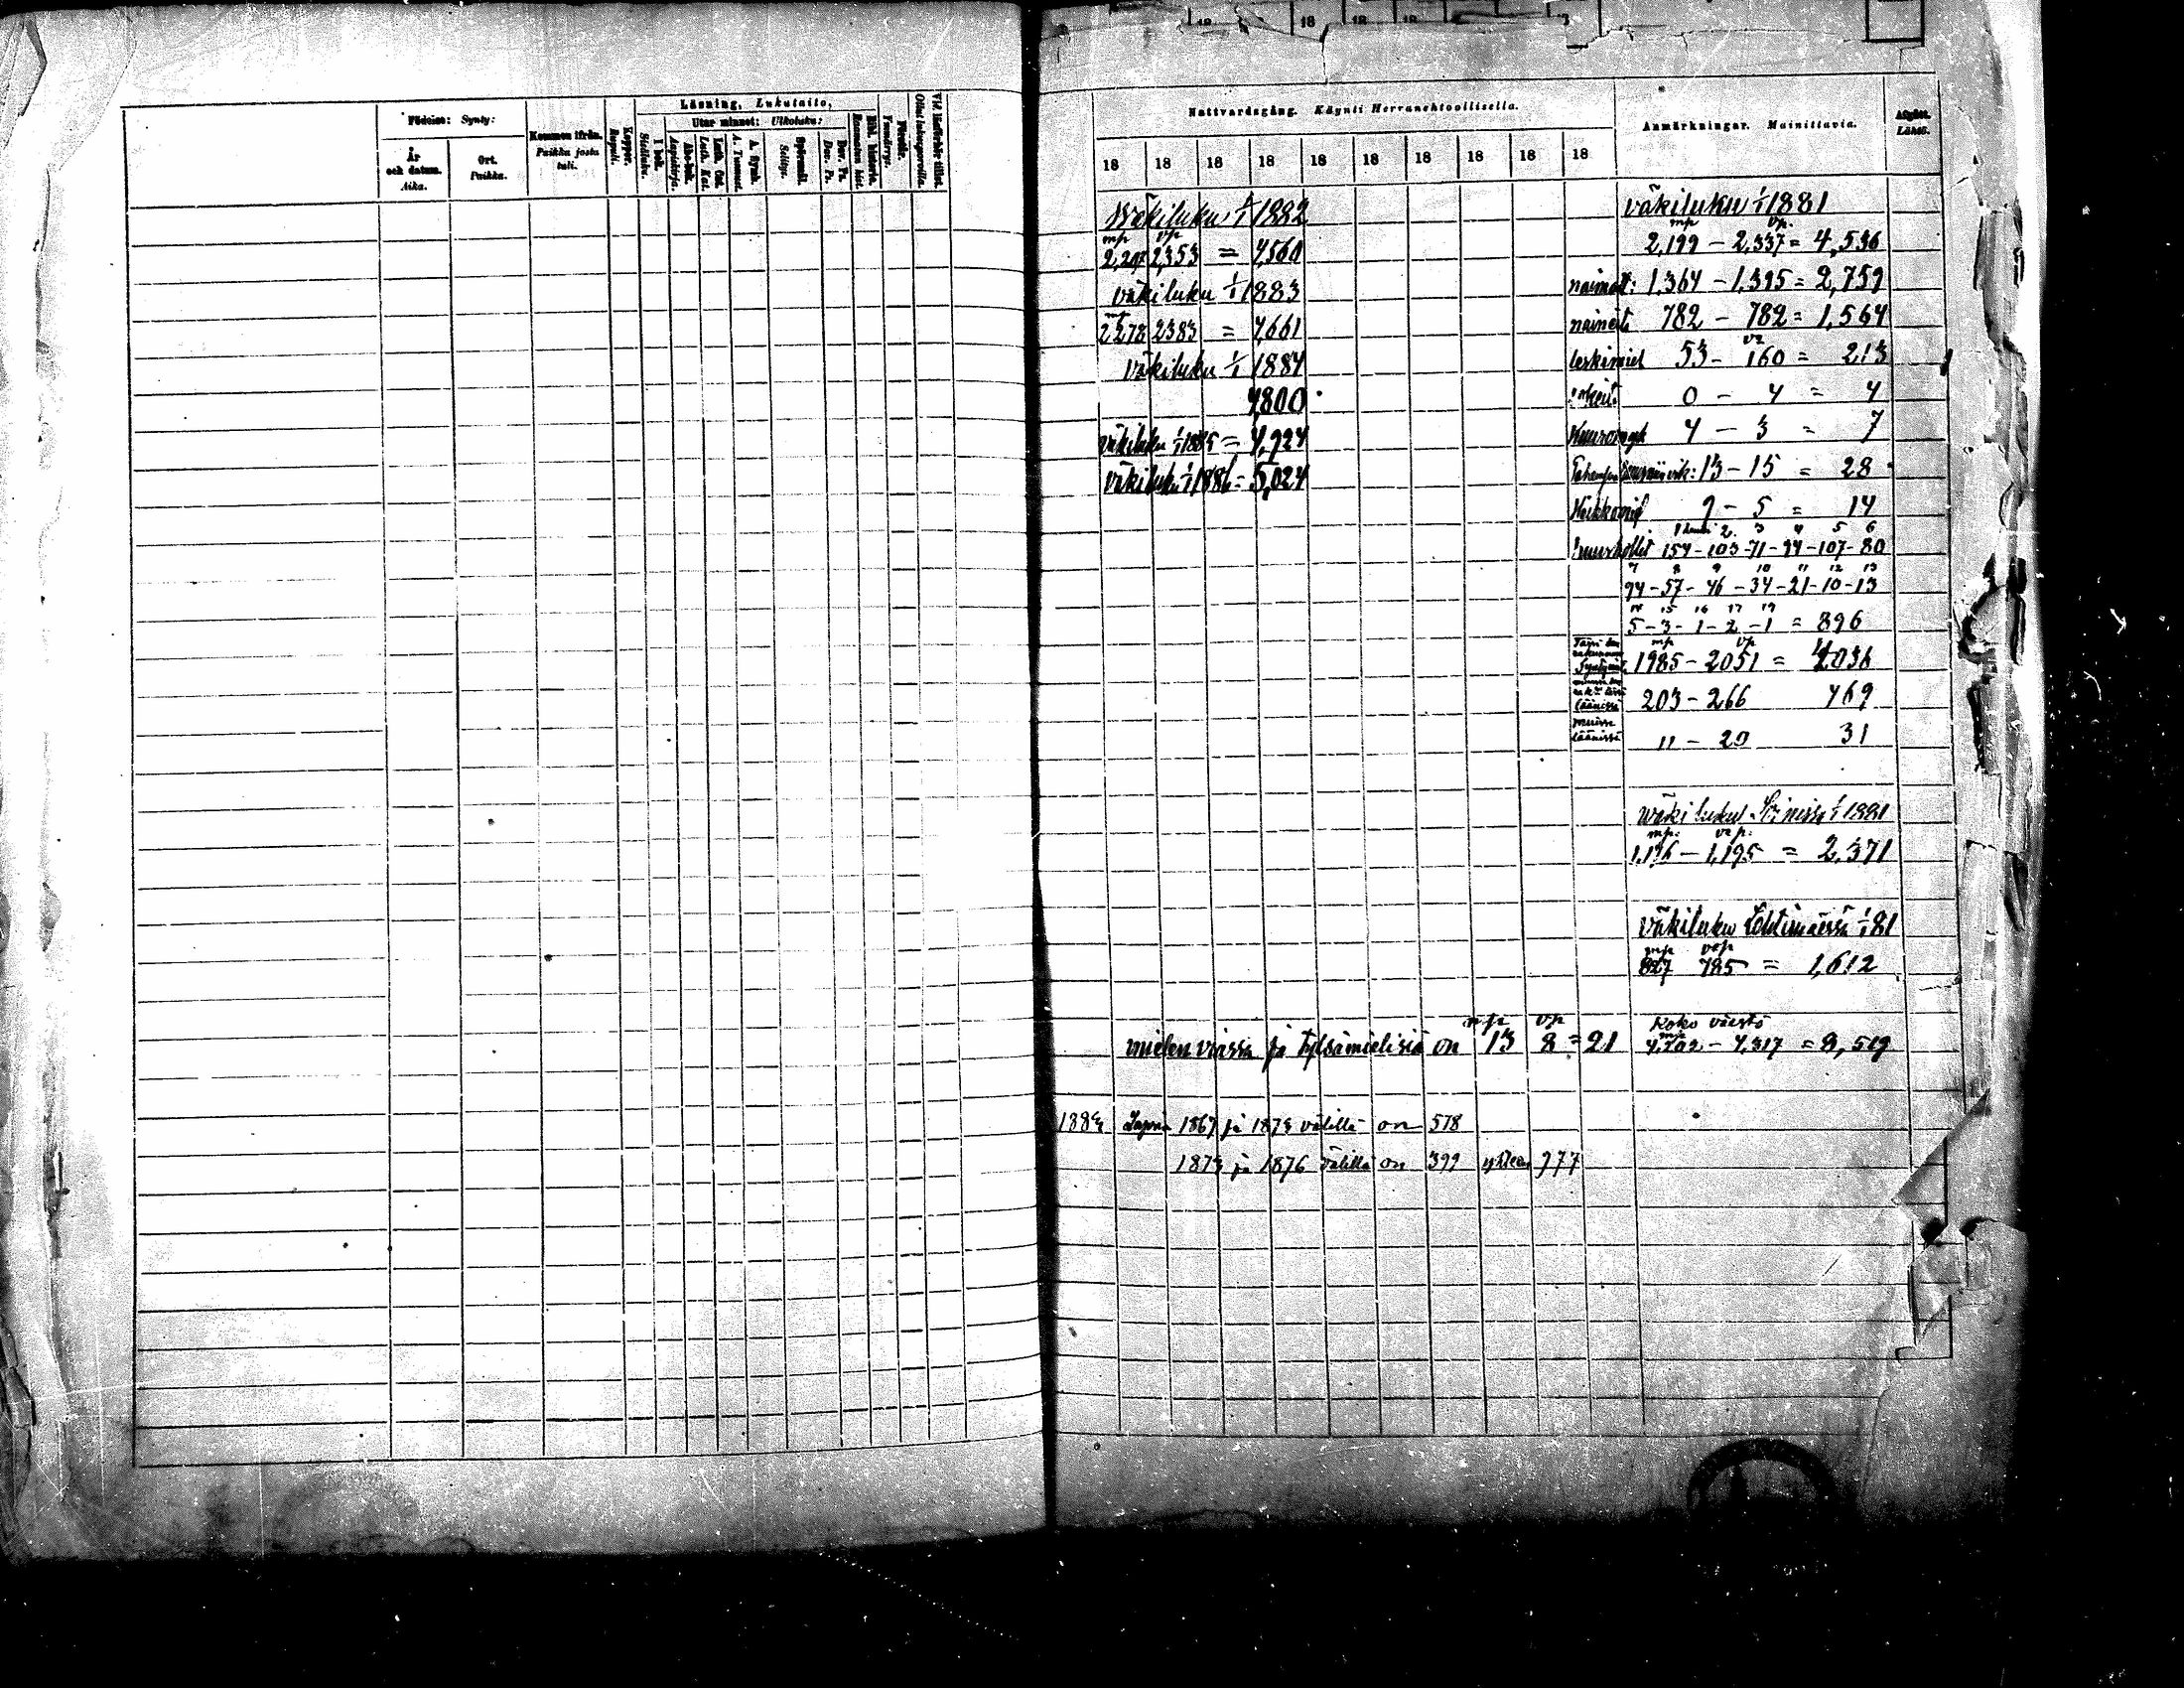 Födelse: Synty:
År och datum. Aika.
Ort. Paikka.
Kommen ifrån. Paikka josta tuli.
Koppor. Rupuli.
Läsning, Lukutaito,
I bok. Sisäluku.
Utur minnet: Ulkoluku:
Abc-bok. Aapiskirja.
Luth. Kat.
A. Symb. A. Tunnust.
Spörsmål. Selitys.
Dav. Ps. Dav. Ps.
Bibl. historia. Raamatun hist.
Förstår. Ymmärrys.
Nattvardsgång. Käynti Herranehtoollisella.
Anmärkningar. Mainittavia.
Afgått. Lähtö.
18 18 18 18 18 18 18 18 18 18
Wäkiluku 1/1 1882
mp vp
2,207 2,353 = 4,560
väkiluku 1/1 1883
mp
2278 2383 = 4,661
väkiluku 1/1 1884
4,800
väkiluku 1/1 1885 = 4,924
väkiluku 1/1 1886 = 5,024
väkiluku 1/1 1881
mp vp.
2,199 - 2,337 = 4,536
naimatt: 1,364 - 1,395 = 2,759
naineita 782 - 782 = 1,564
leskimiel 53 - 160 = 213
0 - 4 = 4
4 - 3 = 7
13 - 15 = 28
9 - 5 = 14
2. 3 4 5 6
154 - 103 - 71 - 94 - 107 - 80
7 8 9 10 11 12 13
94 - 57 - 46 - 34 - 21 - 10 - 13
14 15 16 17 19
5 - 3 - 1 - 2 - 1 = 896
mp vp
1985 - 2051 = 4036
203 - 266 469
läänissä
muissa läänissä 11 - 20 31
Wäkiluku 1/1 1881
mp: vp:
1,176 - 1,195 = 2,371
Väkiluku Lehtimäessä 1/1 81
mp vp
827 785 = 1,612
mp vp
mielen viassa ja tylsämielisiä on 13 8 = 21
Koko väestö
4,202 - 4,317 = 8,519
1883 Lapsia 1867 ja 1873 välillä on 578
1873 ja 1876 välillä on 399 yhteen 977